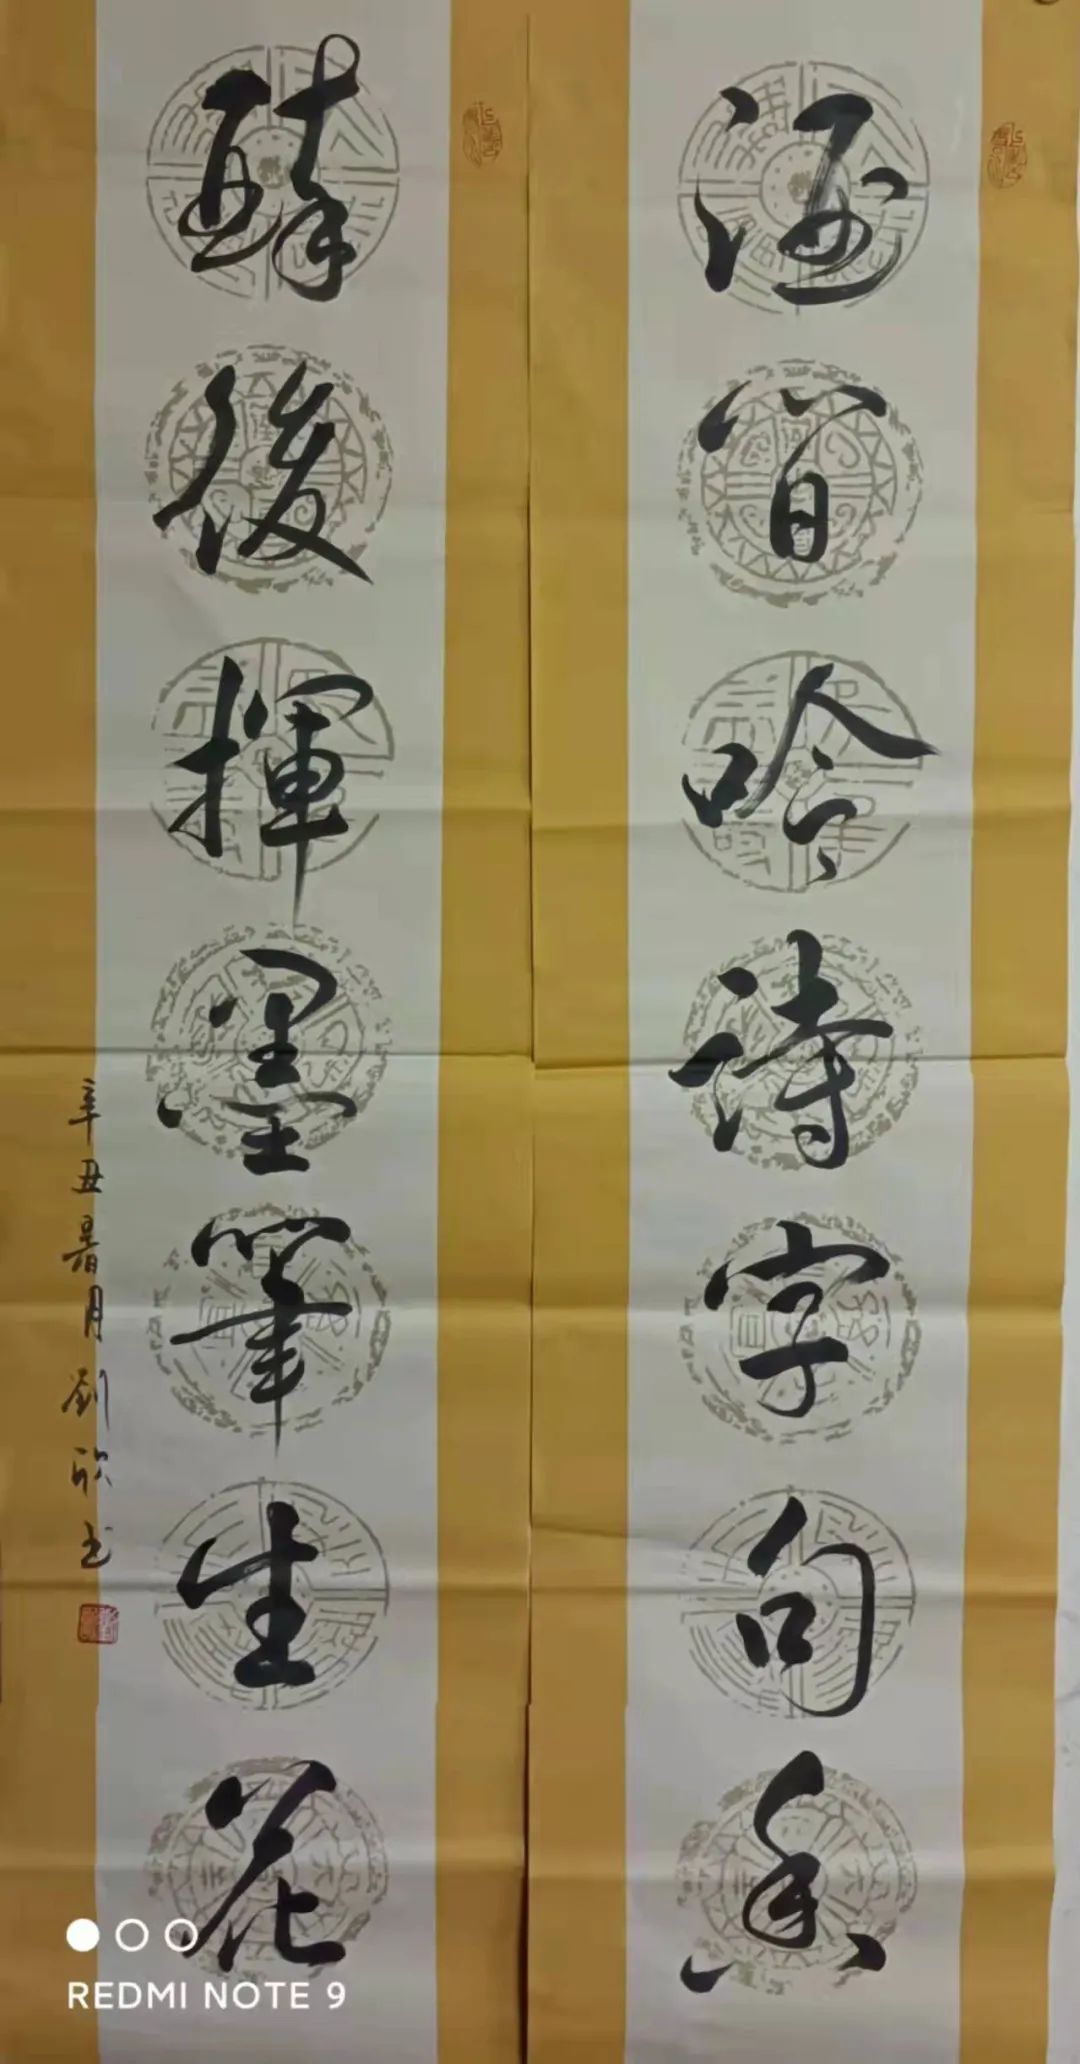 酒間吟詩字句香
醉後揮墨筆生花
辛丑暑月劉欣书
REDMI NOTE 9